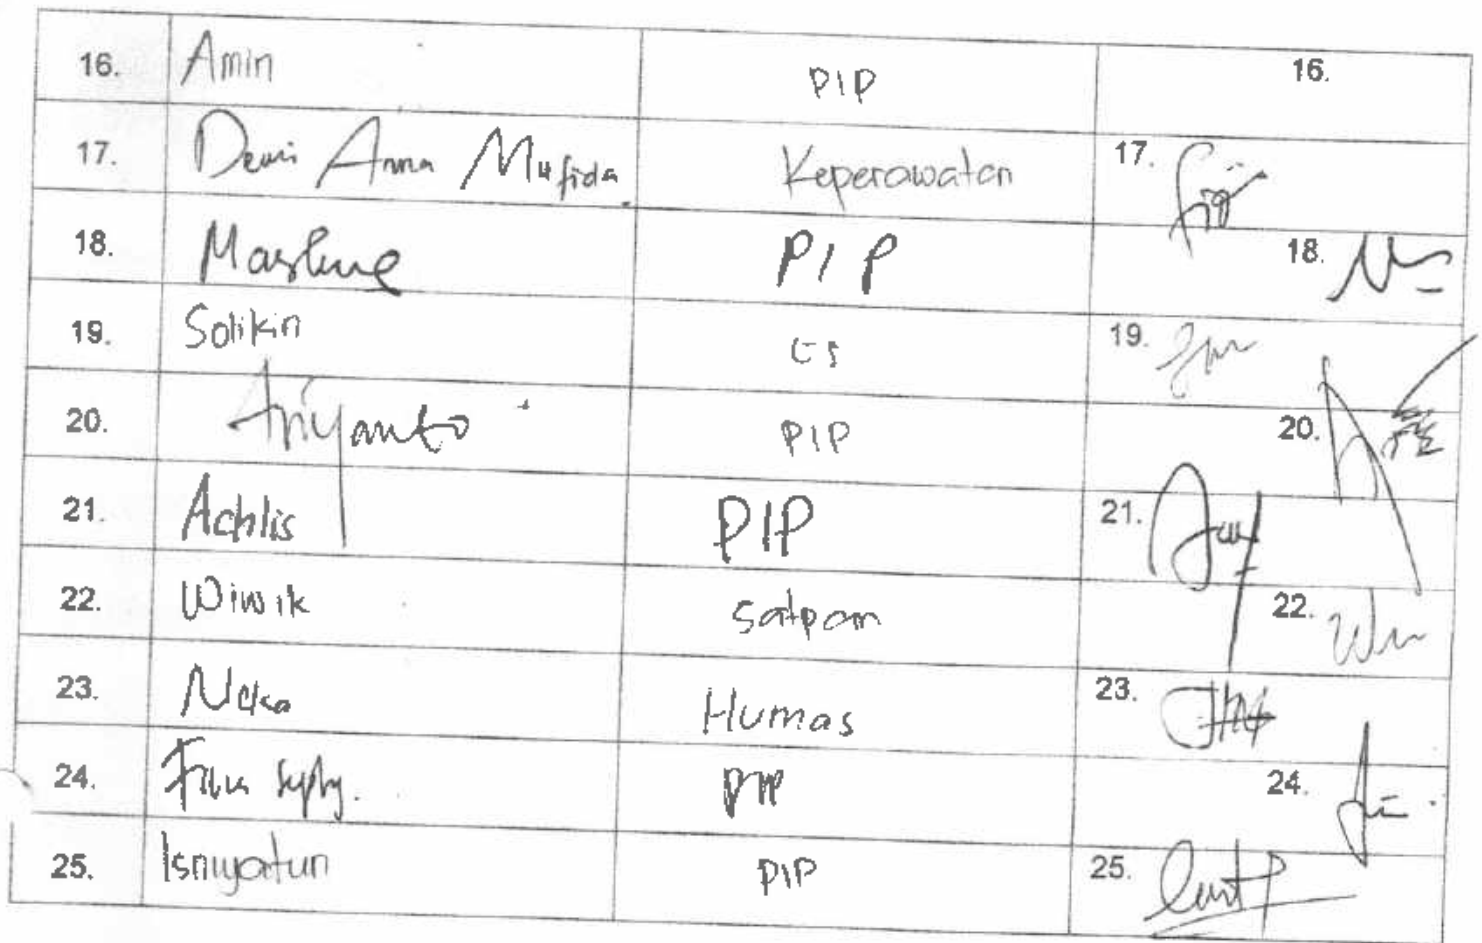 16. Amin PIP 16.
17. Dewi Anna Mufida Keperawatan 17.
18. PIP 18.
19. Solikin 19.
20. Ariyanto PIP 20.
21. Achlis PIP 21.
22. Wiwik Satpam 22.
23. Humas 23.
24. PIP 24.
25. Isniyatun PIP 25.